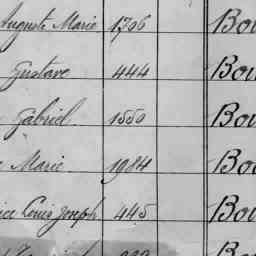 Auguste Marie 1706 Bou
Gustave 444 Bou
Gabriel 1550 Bou
Marie 1984 Bou
Louis Joseph 445 Bou